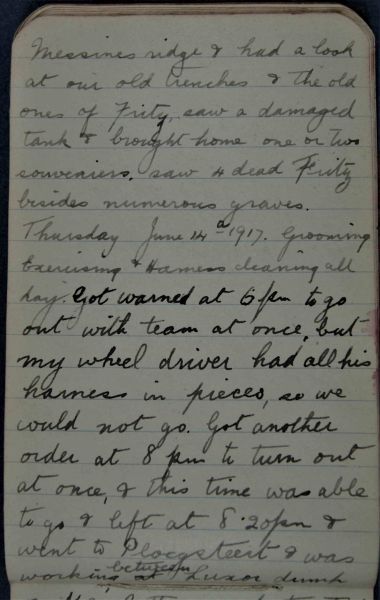 Messines ridge & had a look
at our old trenches & the old
ones of Frity, saw a damaged
tank & brought home one or two
souveniers. saw 4 dead Frity
besides numerous graves.
Thursday June 14th 1917. Grooming
Exercising & Harness cleaning all
day. Got warned at 6 pm to go
out with team at once, but
my wheel driver had all his
harness in pieces, so we
would not go. Got another
order at 8 pm to turn out
at once, & this time was able
to go & left at 8.20pm &
went to Ploegsteert & was
between
working at Luxor dump